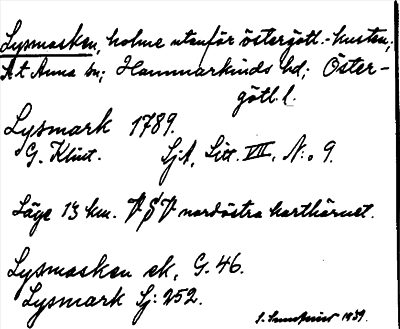 Lysmasken, holme utanför östergötl.-kusten;
S:t Anna sn; Hammarkinds hd; Öster-
götl. l.
Lysmark 1789.
G. Klint. Sjk, Litt. VII, N:o 9.
Läge 13 km. VSV nordöstra karthörnet.
Lysmasken ek, G. 46.
Lysmark Sj: 252.
1939.